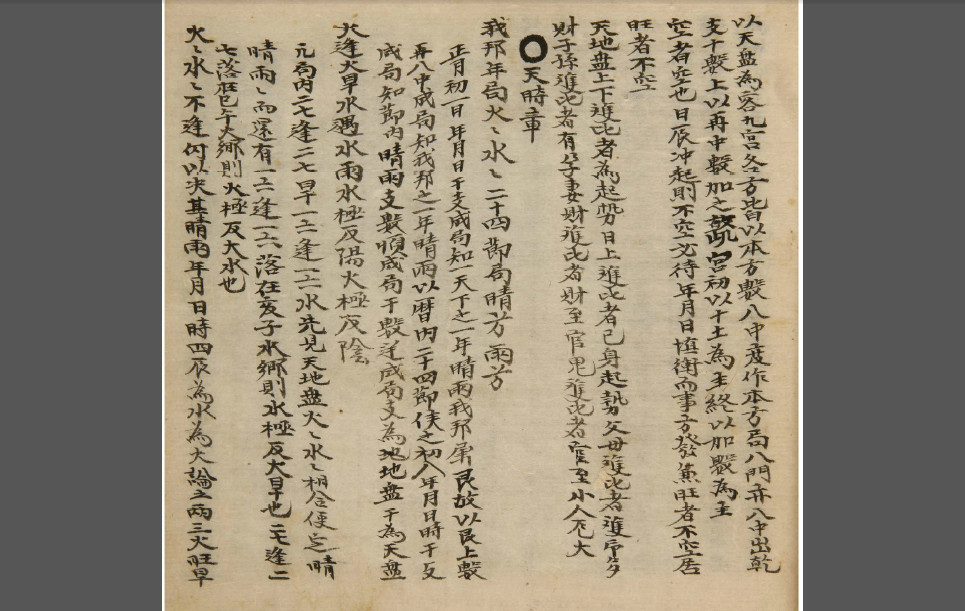 以天盤為客九宮各方皆以本方數入中变作本方局八門并入中出乾
支干數上以再中數加之疏宮初以十土為主終以加數為主
空者空也日辰冲起則不空必待年月日填衝而事方發兼旺者不空居
旺者不空
天地盤上下雙比者為起勢日上雙比者己身起勢父母雙比者雙
財子孫雙比者有孕妻財雙比者財至官鬼雙比者官至小人厄大
天時章
我邦年局火〻水〻二十四節局晴方雨方
正月初一日年月日干支成局知一天下之一年晴雨我邦屬艮故以艮上數
再入中成局知我邦之一年晴雨以曆內二十四節候之初入年月日時干支
成局知節內晴雨支數順成局干數逆成局支為地地盤干為天盤
火逢火旱水遇水雨水極反陽火極反陰
元局內二七逢二七旱一六逢一六水先見天地盤火〻水〻相合便定晴
晴雨〻而還有一六逢一六落在亥子水鄉則水極反大旱也二七逢二
七落在巳午火鄉則火極反大水也
火〻水〻不逢何以决其晴雨年月日時四辰為水為火論之兩三火旺旱